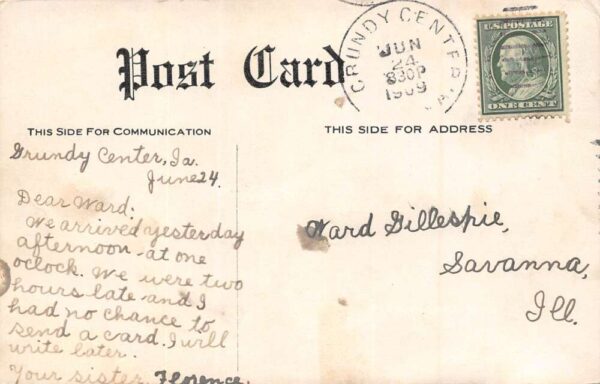 Post Card
GRUNDY CENTER, IA.
JUN
24
830P
1909
U.S. POSTAGE
ONE CENT
THIS SIDE FOR COMMUNICATION
THIS SIDE FOR ADDRESS
Grundy Center, Ia.
June 24.
Dear Ward:
We arrived yesterday
afternoon at one
oclock. We were two
hours late and I
had no chance to
send a card. I will
write later.
Your sister, Florence.
Ward Gillespie,
Savanna,
Ill.